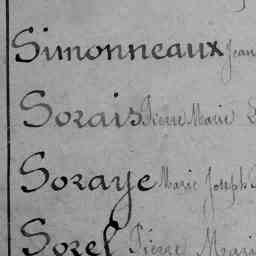 Simonneaux Jean
Sorais Pierre Marie
Soraye Marie Joseph
Sorel Pierre Marie